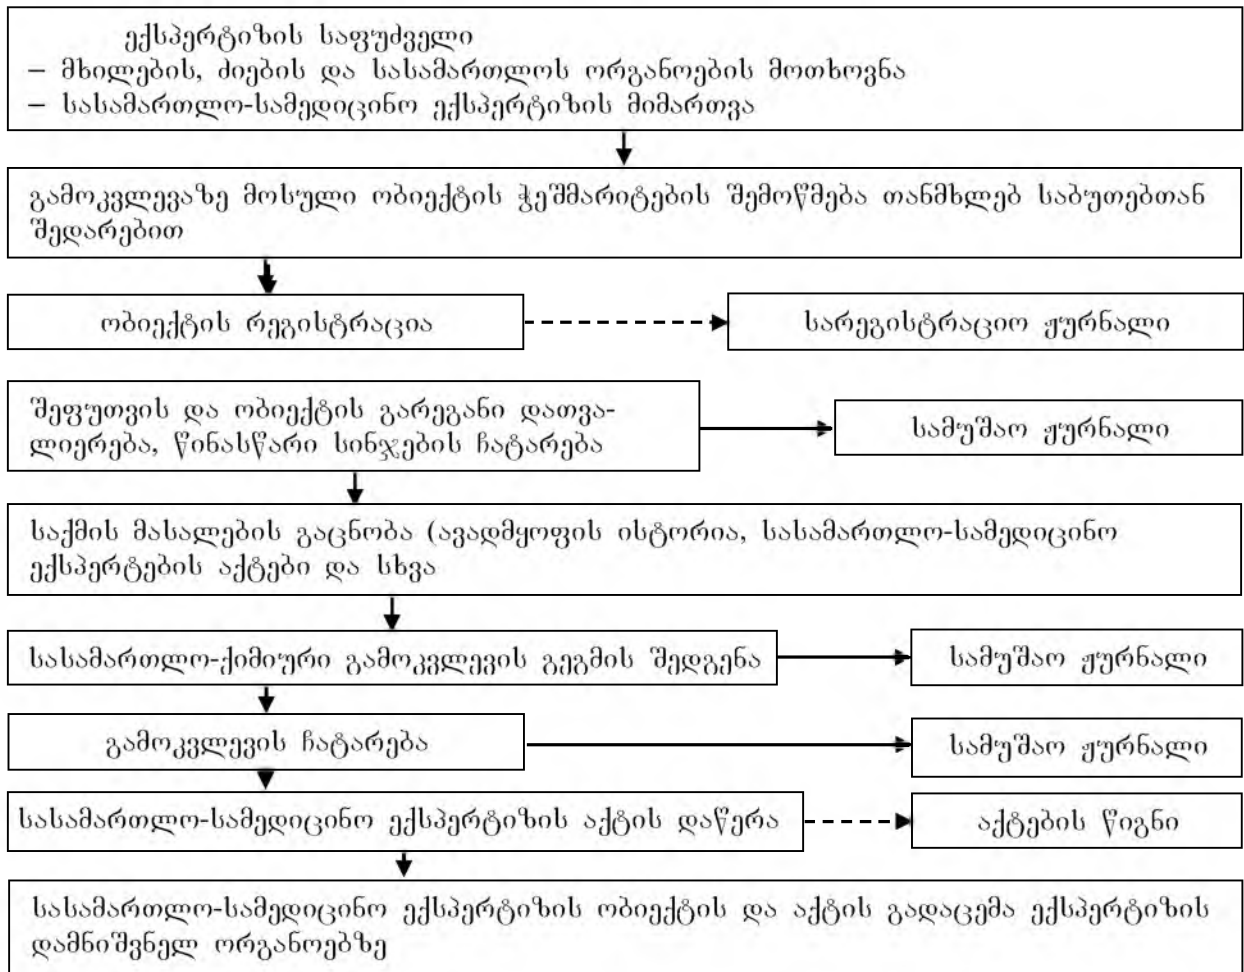 ექსპერტიზის საფუძველი
– მხილების, ძიების და სასამართლოს ორგანოების მოთხოვნა
– სასამართლო-სამედიცინო ექსპერტიზის მიმართვა
გამოკვლევაზე მოსული ობიექტის ჭეშმარიტების შემოწმება თანმხლებ საბუთებთან
შედარებით
ობიექტის რეგისტრაცია
სარეგისტრაციო ჟურნალი
შეფუთვის და ობიექტის გარეგანი დათვა-
ლიერება, წინასწარი სინჯების ჩატარება
სამუშაო ჟურნალი
საქმის მასალების გაცნობა (ავადმყოფის ისტორია, სასამართლო-სამედიცინო
ექსპერტების აქტები და სხვა
სასამართლო-ქიმიური გამოკვლევის გეგმის შედგენა
სამუშაო ჟურნალი
გამოკვლევის ჩატარება
სამუშაო ჟურნალი
სასამართლო-სამედიცინო ექსპერტიზის აქტის დაწერა
აქტების წიგნი
სასამართლო-სამედიცინო ექსპერტიზის ობიექტის და აქტის გადაცემა ექსპერტიზის
დამნიშვნელ ორგანოებზე